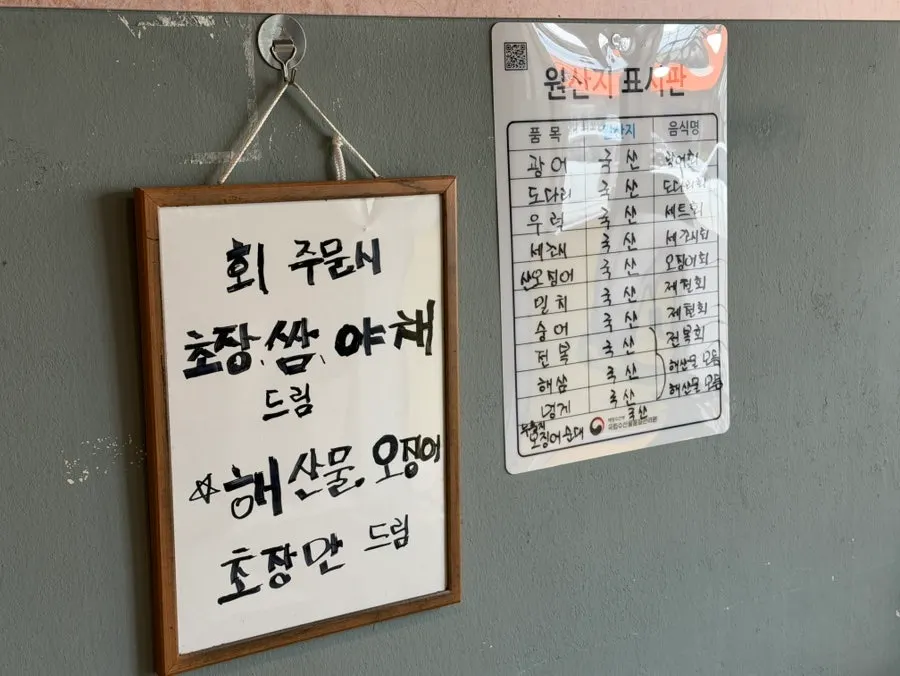 회 주문시
초장, 쌈, 야채
드림
☆해산물, 오징어
초장만 드림
원산지 표시판
품 목 원산지 음식명
광어 국산 광어회
도다리 국산 도다리회
우럭 국산 세트회
세꼬시 국산 세꼬시회
산오징어 국산 오징어회
밀치 국산 제철회
숭어 국산 제철회
전복 국산 전복회
해삼 국산 해산물 모듬
멍게 국산 해산물 모듬
오징어순대 국산
국립수산물품질관리원